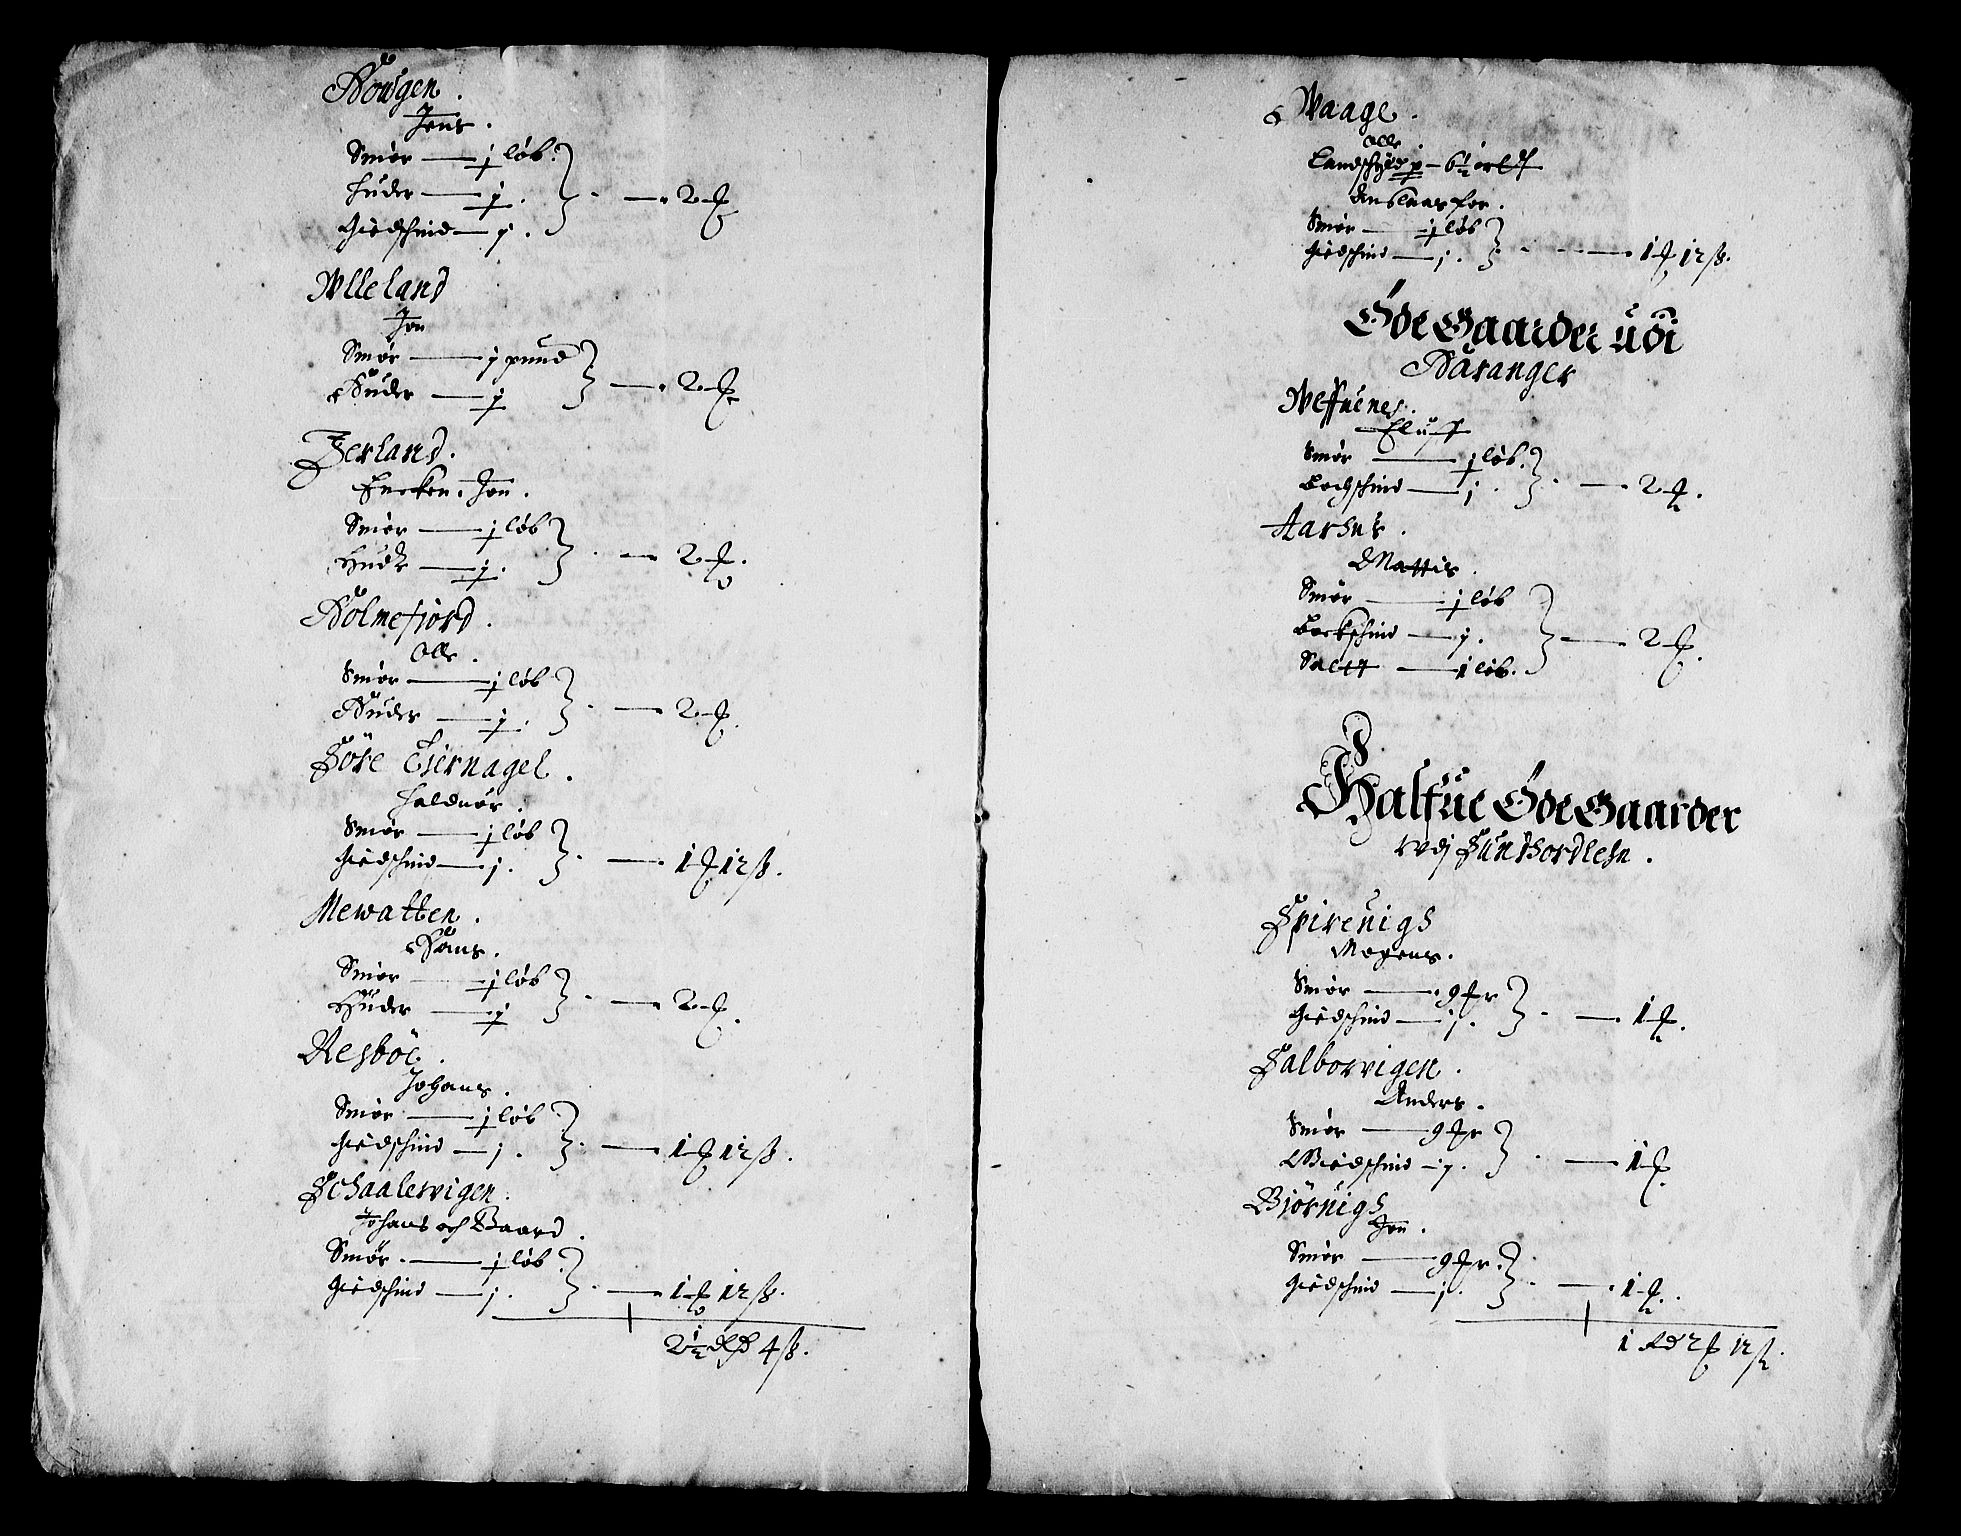 Howgen.
Jens.
Smör — j löb.
Huder — j. — 2
Giedschind — j.
Wlleland
Jon
Smör — j pund
Huder — j — 2
Jerland.
Encken. Jon.
Smör — j löb
Hude — j. — 2
Holmefjord.
Olle.
Smör — j löb
Huder — j. — 2
Söre Tiernagel.
Halduor.
Smör — j löb
Giedschind — j. — 1 12 ß.
Mewatten.
Hans.
Smör — j löb
Huder — j — 2
Resböe.
Johans.
Smör — j löb
Giedschind — j. — 1 12 ß.
Schaalewigen.
Johans och Baard.
Smör. — j löb.
Giedschind — j. — 1 12 ß.
2½ dlr 4 ß.
Waage.
Olle.
Landschyld — 6½
Anslaas for.
Smör — j löb
Giedschind — j. — 1 12 ß.
Öde Gaarder udi
Haranger
Weffuenes.
Eluff
Smör — j löb.
Bochschind — j. — 2
Aarhus.
Mattis.
Smör — j löb
Bockschind — j. — 2
Saltt — 1 löb.
Halfue Öde Gaarder
wdj Sundhordlehn.
Spireuigh
Mogens.
Smör — 9
Giedschind — j. — 1
Salborvigen.
Anders.
Smör — 9
Giedschind — j. — 1
Björnigh
Jon.
Smör — 9
Giedschind — j. — 1
1 Rd 2 12 ß